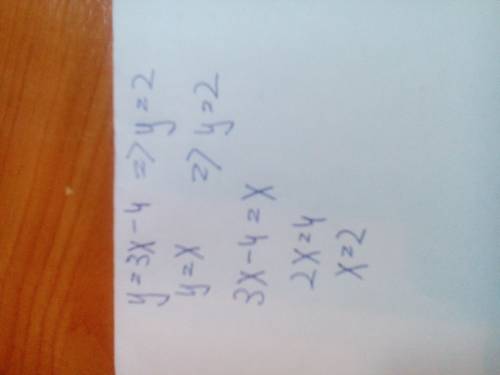 y=3x-4 => y=2
y=x => y=2
3x-4=x
2x=4
x=2